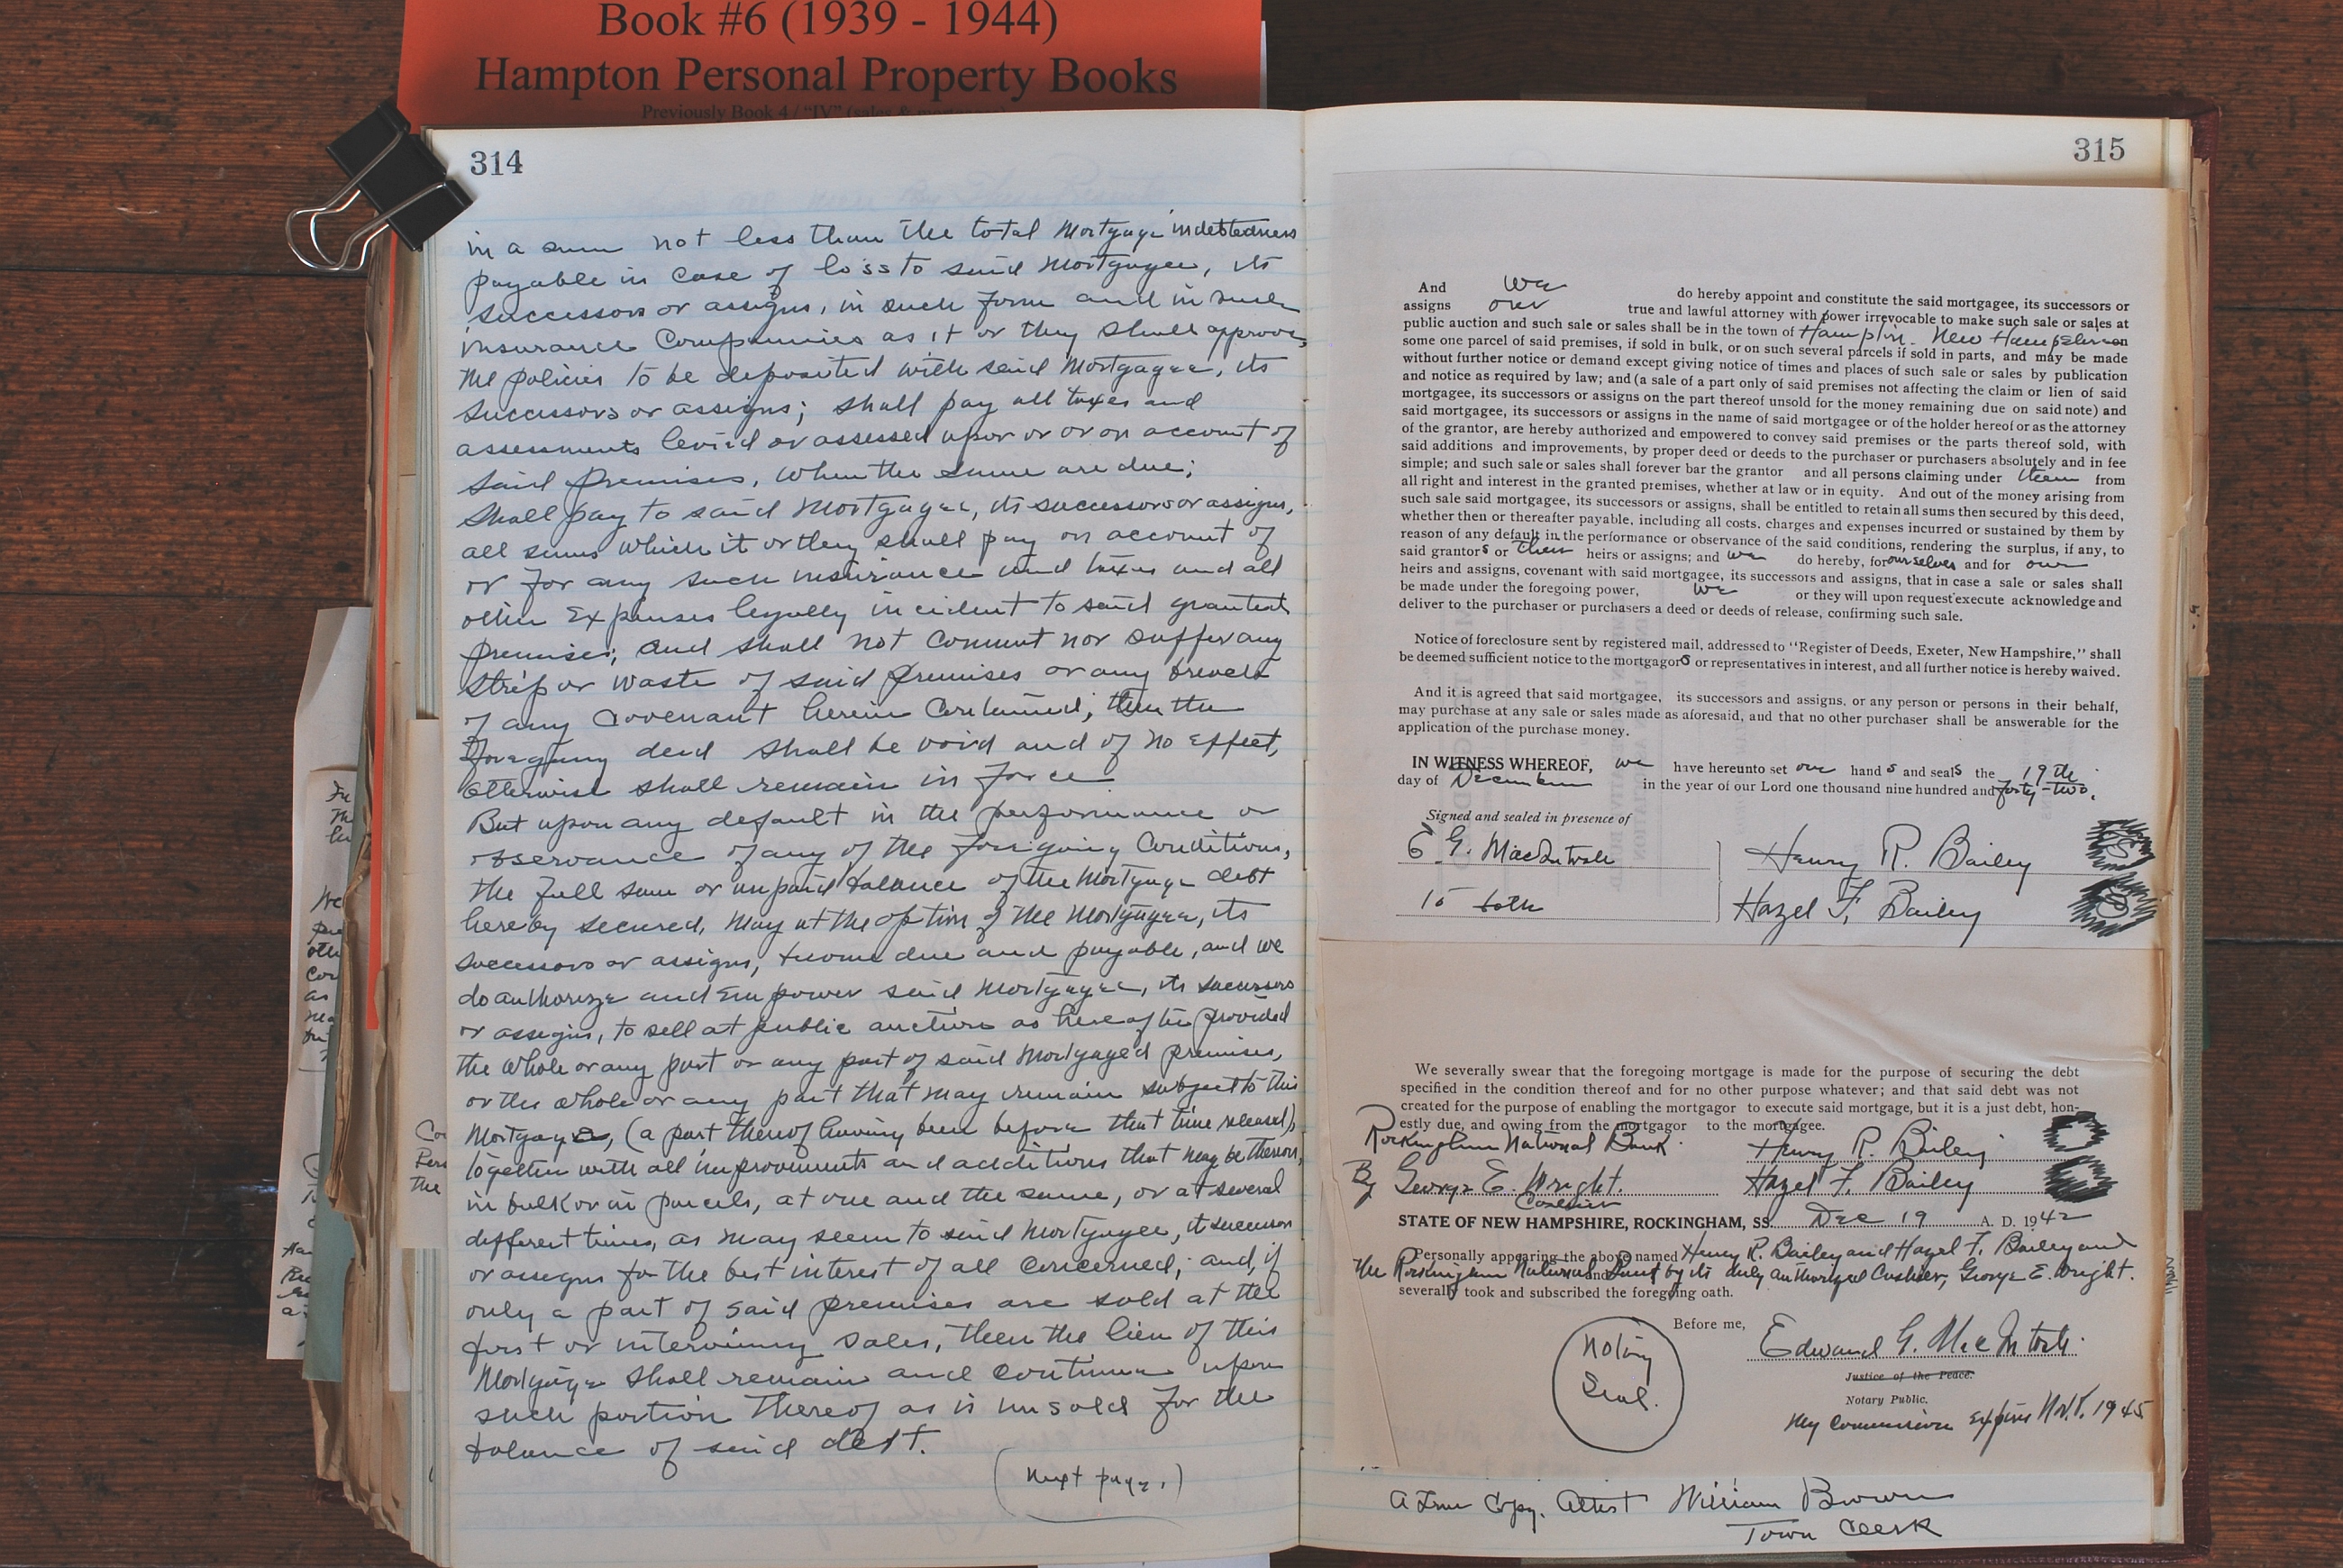 Book #6 (1939 - 1944)
Hampton Personal Property Books
Previously Book 4 / "IV" (sales & mortgages)
314
in a sum not less than the total Mortgage indebtedness
payable in case of loss to said Mortgagee, its
successors or assigns, in such form and in such
insurance Companies as it or they shall approve,
the policies to be deposited with said Mortgagee, its
successors or assigns; shall pay all taxes and
assessments levied or assessed upon or or on account of
said premises, when the same are due;
shall pay to said Mortgagee, its successors or assigns,
all sums which it or they shall pay on account of
or for any such insurance and taxes and all
other expenses legally incident to said granted
premises; and shall not commit nor suffer any
strip or waste of said premises or any breach
of any covenant herein contained; then the
foregoing deed shall be void and of no effect,
otherwise shall remain in force
But upon any default in the performance or
observance of any of the foregoing Conditions,
the full sum or unpaid balance of the Mortgage debt
hereby secured, may at the option of the Mortgagee, its
successors or assigns, become due and payable, and we
do authorize and empower said Mortgagee, its successors
or assigns, to sell at public auction as hereafter provided
the whole or any part or any part of said Mortgaged premises,
or the whole or any part that may remain subject to this
Mortgage, (a part thereof having been before that time released),
together with all improvements and additions that may be thereon,
in bulk or in parcels, at one and the same, or at several
different times, as may seem to said Mortgagee, its successors
or assigns for the best interest of all concerned; and, if
only a part of said premises are sold at the
first or intervening sales, then the lien of this
Mortgage shall remain and continue upon
such portion thereof as is unsold for the
balance of said debt.
(Next page.)
315
And we do hereby appoint and constitute the said mortgagee, its successors or
assigns our true and lawful attorney with power irrevocable to make such sale or sales at
public auction and such sale or sales shall be in the town of Hampton. New Hampshire on
some one parcel of said premises, if sold in bulk, or on such several parcels if sold in parts, and may be made
without further notice or demand except giving notice of times and places of such sale or sales by publication
and notice as required by law; and (a sale of a part only of said premises not affecting the claim or lien of said
mortgagee, its successors or assigns on the part thereof unsold for the money remaining due on said note) and
said mortgagee, its successors or assigns in the name of said mortgagee or of the holder hereof or as the attorney
of the grantor, are hereby authorized and empowered to convey said premises or the parts thereof sold, with
said additions and improvements, by proper deed or deeds to the purchaser or purchasers absolutely and in fee
simple; and such sale or sales shall forever bar the grantor and all persons claiming under them from
all right and interest in the granted premises, whether at law or in equity. And out of the money arising from
such sale said mortgagee, its successors or assigns, shall be entitled to retain all sums then secured by this deed,
whether then or thereafter payable, including all costs, charges and expenses incurred or sustained by them by
reason of any default in the performance or observance of the said conditions, rendering the surplus, if any, to
said grantors or their heirs or assigns; and we do hereby, for ourselves and for our
heirs and assigns, covenant with said mortgagee, its successors and assigns, that in case a sale or sales shall
be made under the foregoing power, we or they will upon request execute acknowledge and
deliver to the purchaser or purchasers a deed or deeds of release, confirming such sale.
Notice of foreclosure sent by registered mail, addressed to "Register of Deeds, Exeter, New Hampshire," shall
be deemed sufficient notice to the mortgagors or representatives in interest, and all further notice is hereby waived.
And it is agreed that said mortgagee, its successors and assigns, or any person or persons in their behalf,
may purchase at any sale or sales made as aforesaid, and that no other purchaser shall be answerable for the
application of the purchase money.
IN WITNESS WHEREOF, we have hereunto set our hands and seals the 19th
day of December in the year of our Lord one thousand nine hundred and forty-two.
Signed and sealed in presence of
E G. MacIntosh Henry R. Bailey
to both Hazel F. Bailey
We severally swear that the foregoing mortgage is made for the purpose of securing the debt
specified in the condition thereof and for no other purpose whatever; and that said debt was not
created for the purpose of enabling the mortgagor to execute said mortgage, but it is a just debt, hon-
estly due, and owing from the mortgagor to the mortgagee.
Rockingham National Bank. Henry R. Bailey
By George E. Wright. Hazel F. Bailey
Cashier
STATE OF NEW HAMPSHIRE, ROCKINGHAM, SS. Dec 19 A. D. 1942
Personally appearing the above named Henry R. Bailey and Hazel F. Bailey and
the Rockingham National Bank by its duly authorized Cashier, George E. Wright.
and
severally took and subscribed the foregoing oath.
Before me, Edward G. MacIntosh.
Notary
Seal.
Justice of the Peace.
Notary Public.
My Commission expires 1945
A True Copy. Attest William Brown
Town Clerk